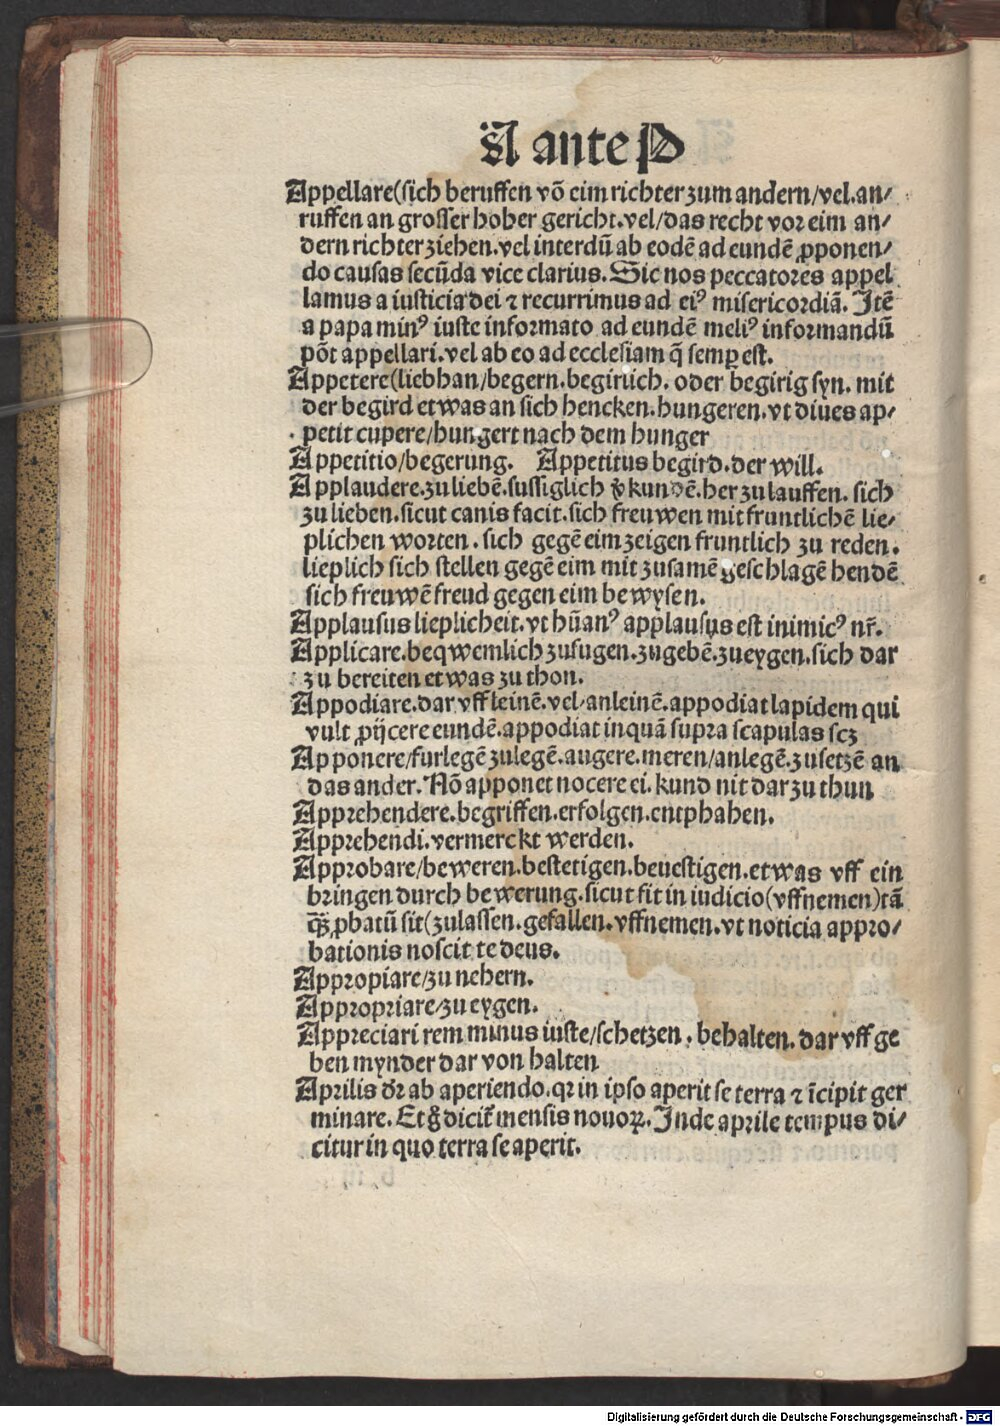 A ante P
Appellare(sich beruffen võ eim richter zum andern/vel.an⸗
ruffen an grosser hoher gericht.vel/das recht vor eim an⸗
dern richter ziehen.vel interdũ ab eodẽ ad eundẽ ꝓponen⸗
do causas secũda vice clarius. Sic nos peccatores appel
lamus a iusticia dei ⁊ recurrimus ad eiꝰ misericordiã. Jtẽ
a papa minꝰ iuste informato ad eundẽ meliꝰ informandũ
põt appellari.vel ab eo ad ecclesiam q̃ semꝑ est.
Appetere(liebhan/begern.begirlich. oder begirig syn. mit
der begird etwas an sich hencken.hungeren.vt diues ap⸗
petit cupere/hungert nach dem hunger
Appetitio/begerung. Appetitus begird.der will.
Applaudere.zu liebẽ.sussiglich v̾kundẽ.her zu lauffen. sich
zu lieben.sicut canis facit.sich freuwen mit fruntlichẽ lie⸗
plichen worten. sich gegẽ eim zeigen fruntlich zu reden.
lieplich sich stellen gegẽ eim mit zusamẽ geschlagẽ hendẽ
sich freuwẽ freud gegen eim bewysen.
Applausus lieplicheit.vt hũanꝰ applausus est inimicꝰ nr̃.
Applicare.beqwemlich zufugen.zugebẽ.zueygen.sich dar
zu bereiten etwas zu thon.
Appodiare.dar vff leinẽ.vel.anleinẽ.appodiat lapidem qui
vult ꝓijcere eundẽ.appodiat inquã supra scapulas scꝫ
Apponere/furlegẽ zulegẽ.augere.meren/anlegẽ.zusetzẽ an
das ander. Nõ apponet nocere ei. kund nit darzu thun
Apprehendere.begriffen.erfolgen.entphahen.
Apprehendi.vermerckt werden.
Approbare/beweren.bestetigen.beuestigen.etwas vff ein
bringen durch bewerung.sicut fit in iudicio(vffnemen)tã
q̃ꝫ ꝓbatũ sit(zulassen.gefallen.vffnemen.vt noticia appro⸗
bationis noscit te deus.
Appropiare/zu nehern.
Appropriare/zu eygen.
Appreciari rem minus iuste/schetzen. behalten. dar vff ge
ben mynder dar von halten
Aprilis dr̃ ab aperiendo.qꝛ in ipso aperit se terra ⁊ ĩcipit ger
minare. Et g̊ dicit᷑ mensis nouoꝝ. Jnde aprile tempus di⸗
citur in quo terra se aperit.
Digitalisierung gefördert durch die Deutsche Forschungsgemeinschaft - DFG